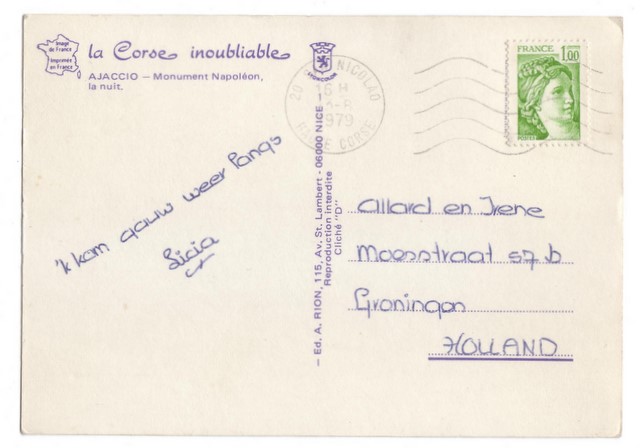 Image
de France
Imprimée
en France
la Corse inoubliable
AJACCIO — Monument Napoléon,
la nuit.
'k kom gauw weer langs
Licia
— Ed. A. RION, 115, Av. St. Lambert - 06000 NICE —
Reproduction interdite
Cliché "D"
20 NICOLAO
16 H
1979
HAUTE CORSE
FRANCE
1,00
POSTES
Allard en Irene
Moesstraat 57 b
Groningen
HOLLAND